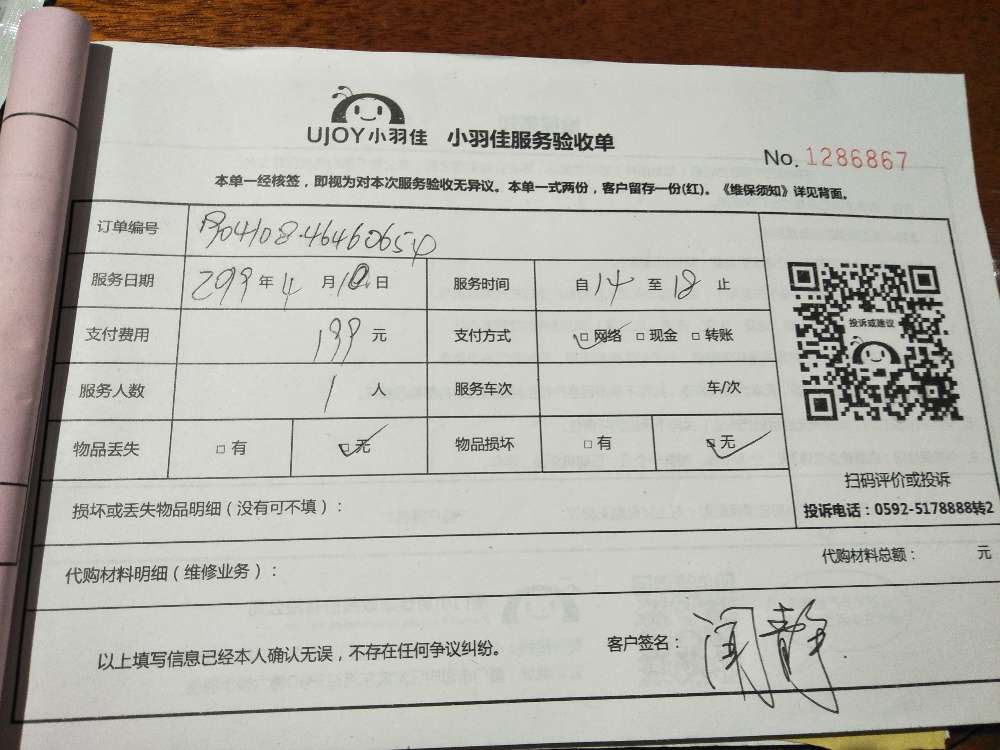 UJOY小羽佳 小羽佳服务验收单
No. 1286867
本单一经核签，即视为对本次服务验收无异议。本单一式两份，客户留存一份(红)。《维保须知》详见背面。
订单编号
服务日期 年 4 月 10 日 服务时间 自 14 至 18 止
支付费用 199 元 支付方式 □网络 □现金 □转账
服务人数 1 人 服务车次 车/次
物品丢失 □有 □无 物品损坏 □有 □无
投诉或建议
扫码评价或投诉
投诉电话：0592-5178888转2
损坏或丢失物品明细（没有可不填）：
代购材料明细（维修业务）： 代购材料总额： 元
以上填写信息已经本人确认无误，不存在任何争议纠纷。 客户签名：